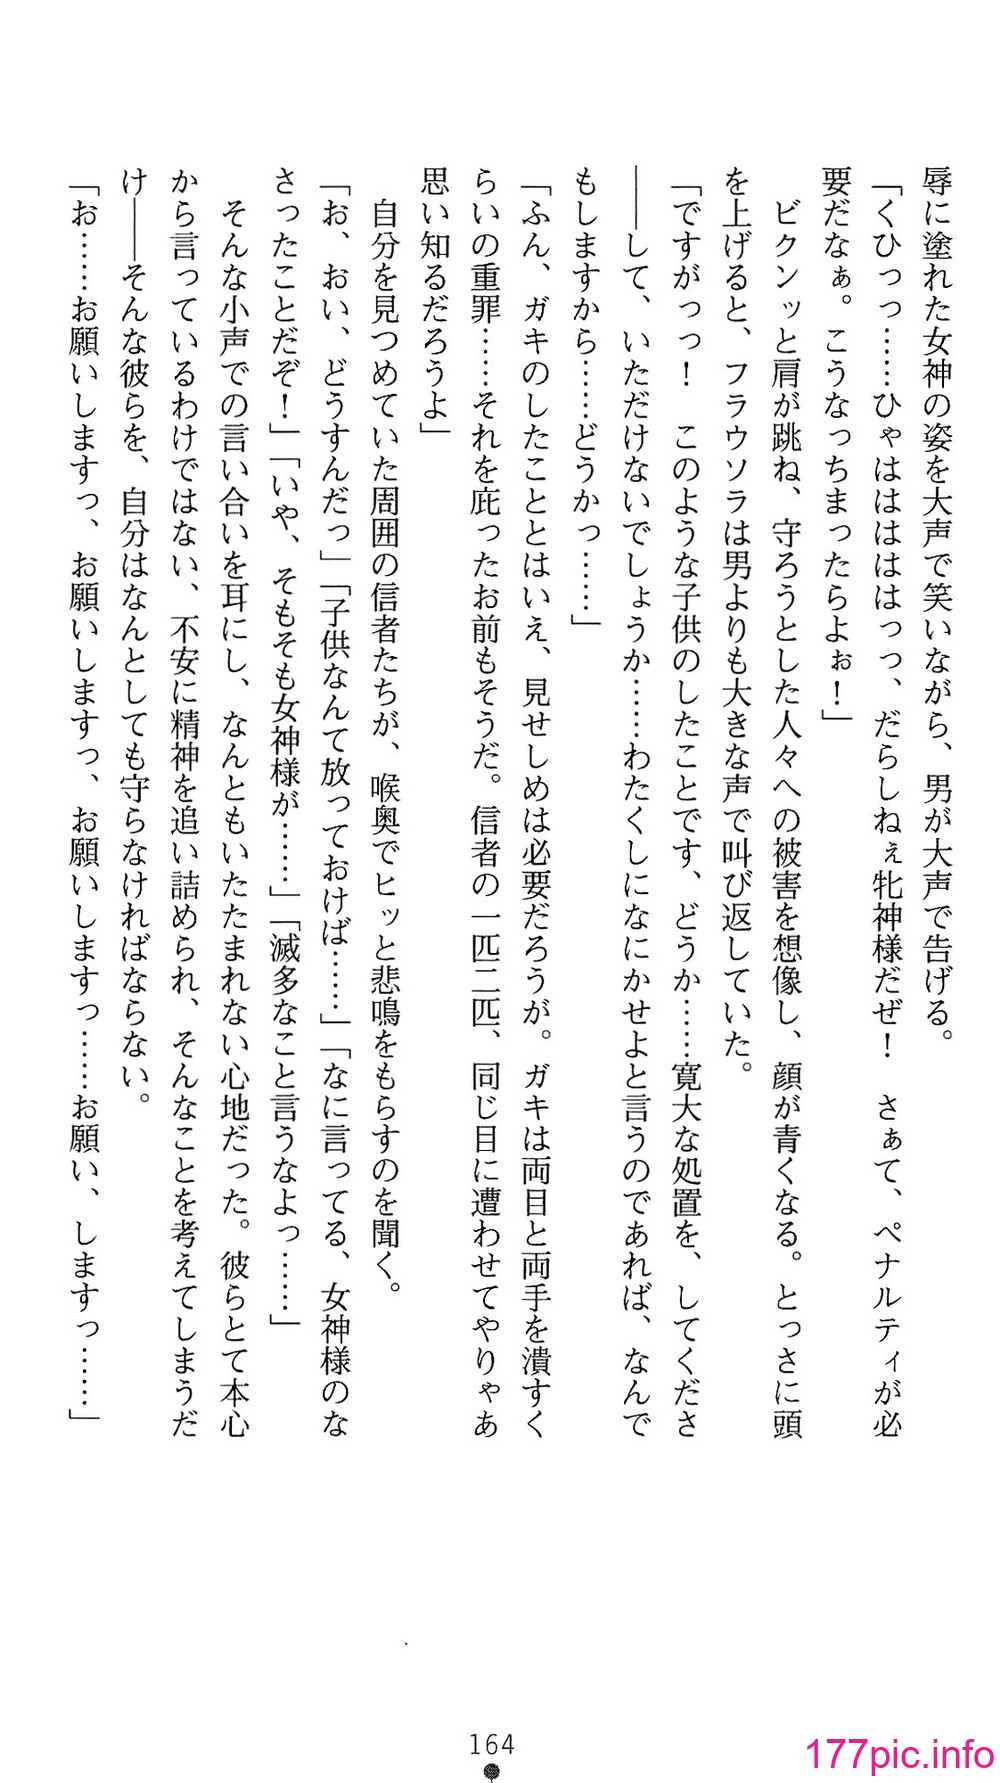 辱に塗れた女神の姿を大声で笑いながら、男が大声で告げる。
「くひっっ……ひゃはははははっっ、だらしねぇ牝神様だぜ！　さぁて、ペナルティが必
要だなぁ。こうなっちまったらよぉ！」
　ビクンッと肩が跳ね、守ろうとした人々への被害を想像し、顔が青くなる。とっさに頭
を上げると、フラウソラは男よりも大きな声で叫び返していた。
「ですがっっ！　このような子供のしたことです、どうか……寛大な処置を、してくださ
――して、いただけないでしょうか……わたくしになにかせよと言うのであれば、なんで
もしますから……どうかっ……」
「ふん、ガキのしたこととはいえ、見せしめは必要だろうが。ガキは両目と両手を潰すく
らいの重罪……それを庇ったお前もそうだ。信者の一匹二匹、同じ目に遭わせてやりゃあ
思い知るだろうよ」
　自分を見つめていた周囲の信者たちが、喉奥でヒッと悲鳴をもらすのを聞く。
「お、おい、どうすんだっ」「子供なんて放っておけば……」「なに言ってる、女神様のな
さったことだぞ！」「いや、そもそも女神様が……」「滅多なこと言うなよっ……」
　そんな小声での言い合いを耳にし、なんともいたたまれない心地だった。彼らとて本心
から言っているわけではない、不安に精神を追い詰められ、そんなことを考えてしまうだ
け――そんな彼らを、自分はなんとしても守らなければならない。
「お……お願いしますっ、お願いしますっ、お願いしますっ……お願い、しますっ……」
164
177pic.info